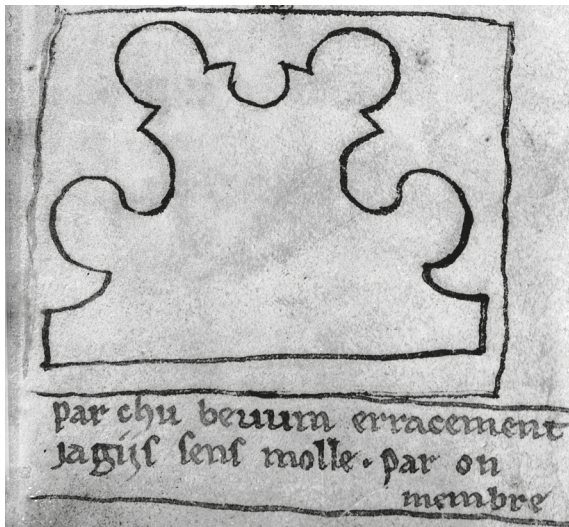 par chu erracement
jagiis sens molle. par on
membre